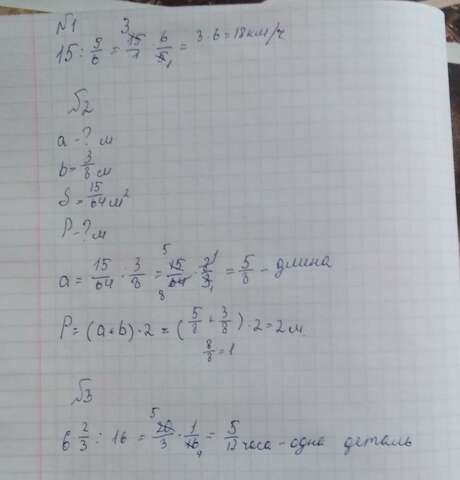 №1
15 : 5/6 = 15/1 · 6/5 = 3·6=18км/ч
№2
a - ? м
b= 3/8 м
S= 15/64 м²
P-? м
a = 15/64 · 3/8 = 15/64 · 8/3 = 5/8 - длина
P= (a+b)·2 = (5/8 + 3/8)·2=2м.
8/8=1
№3
6 2/3 : 16 = 20/3 · 1/16 = 5/12 часа - одна деталь